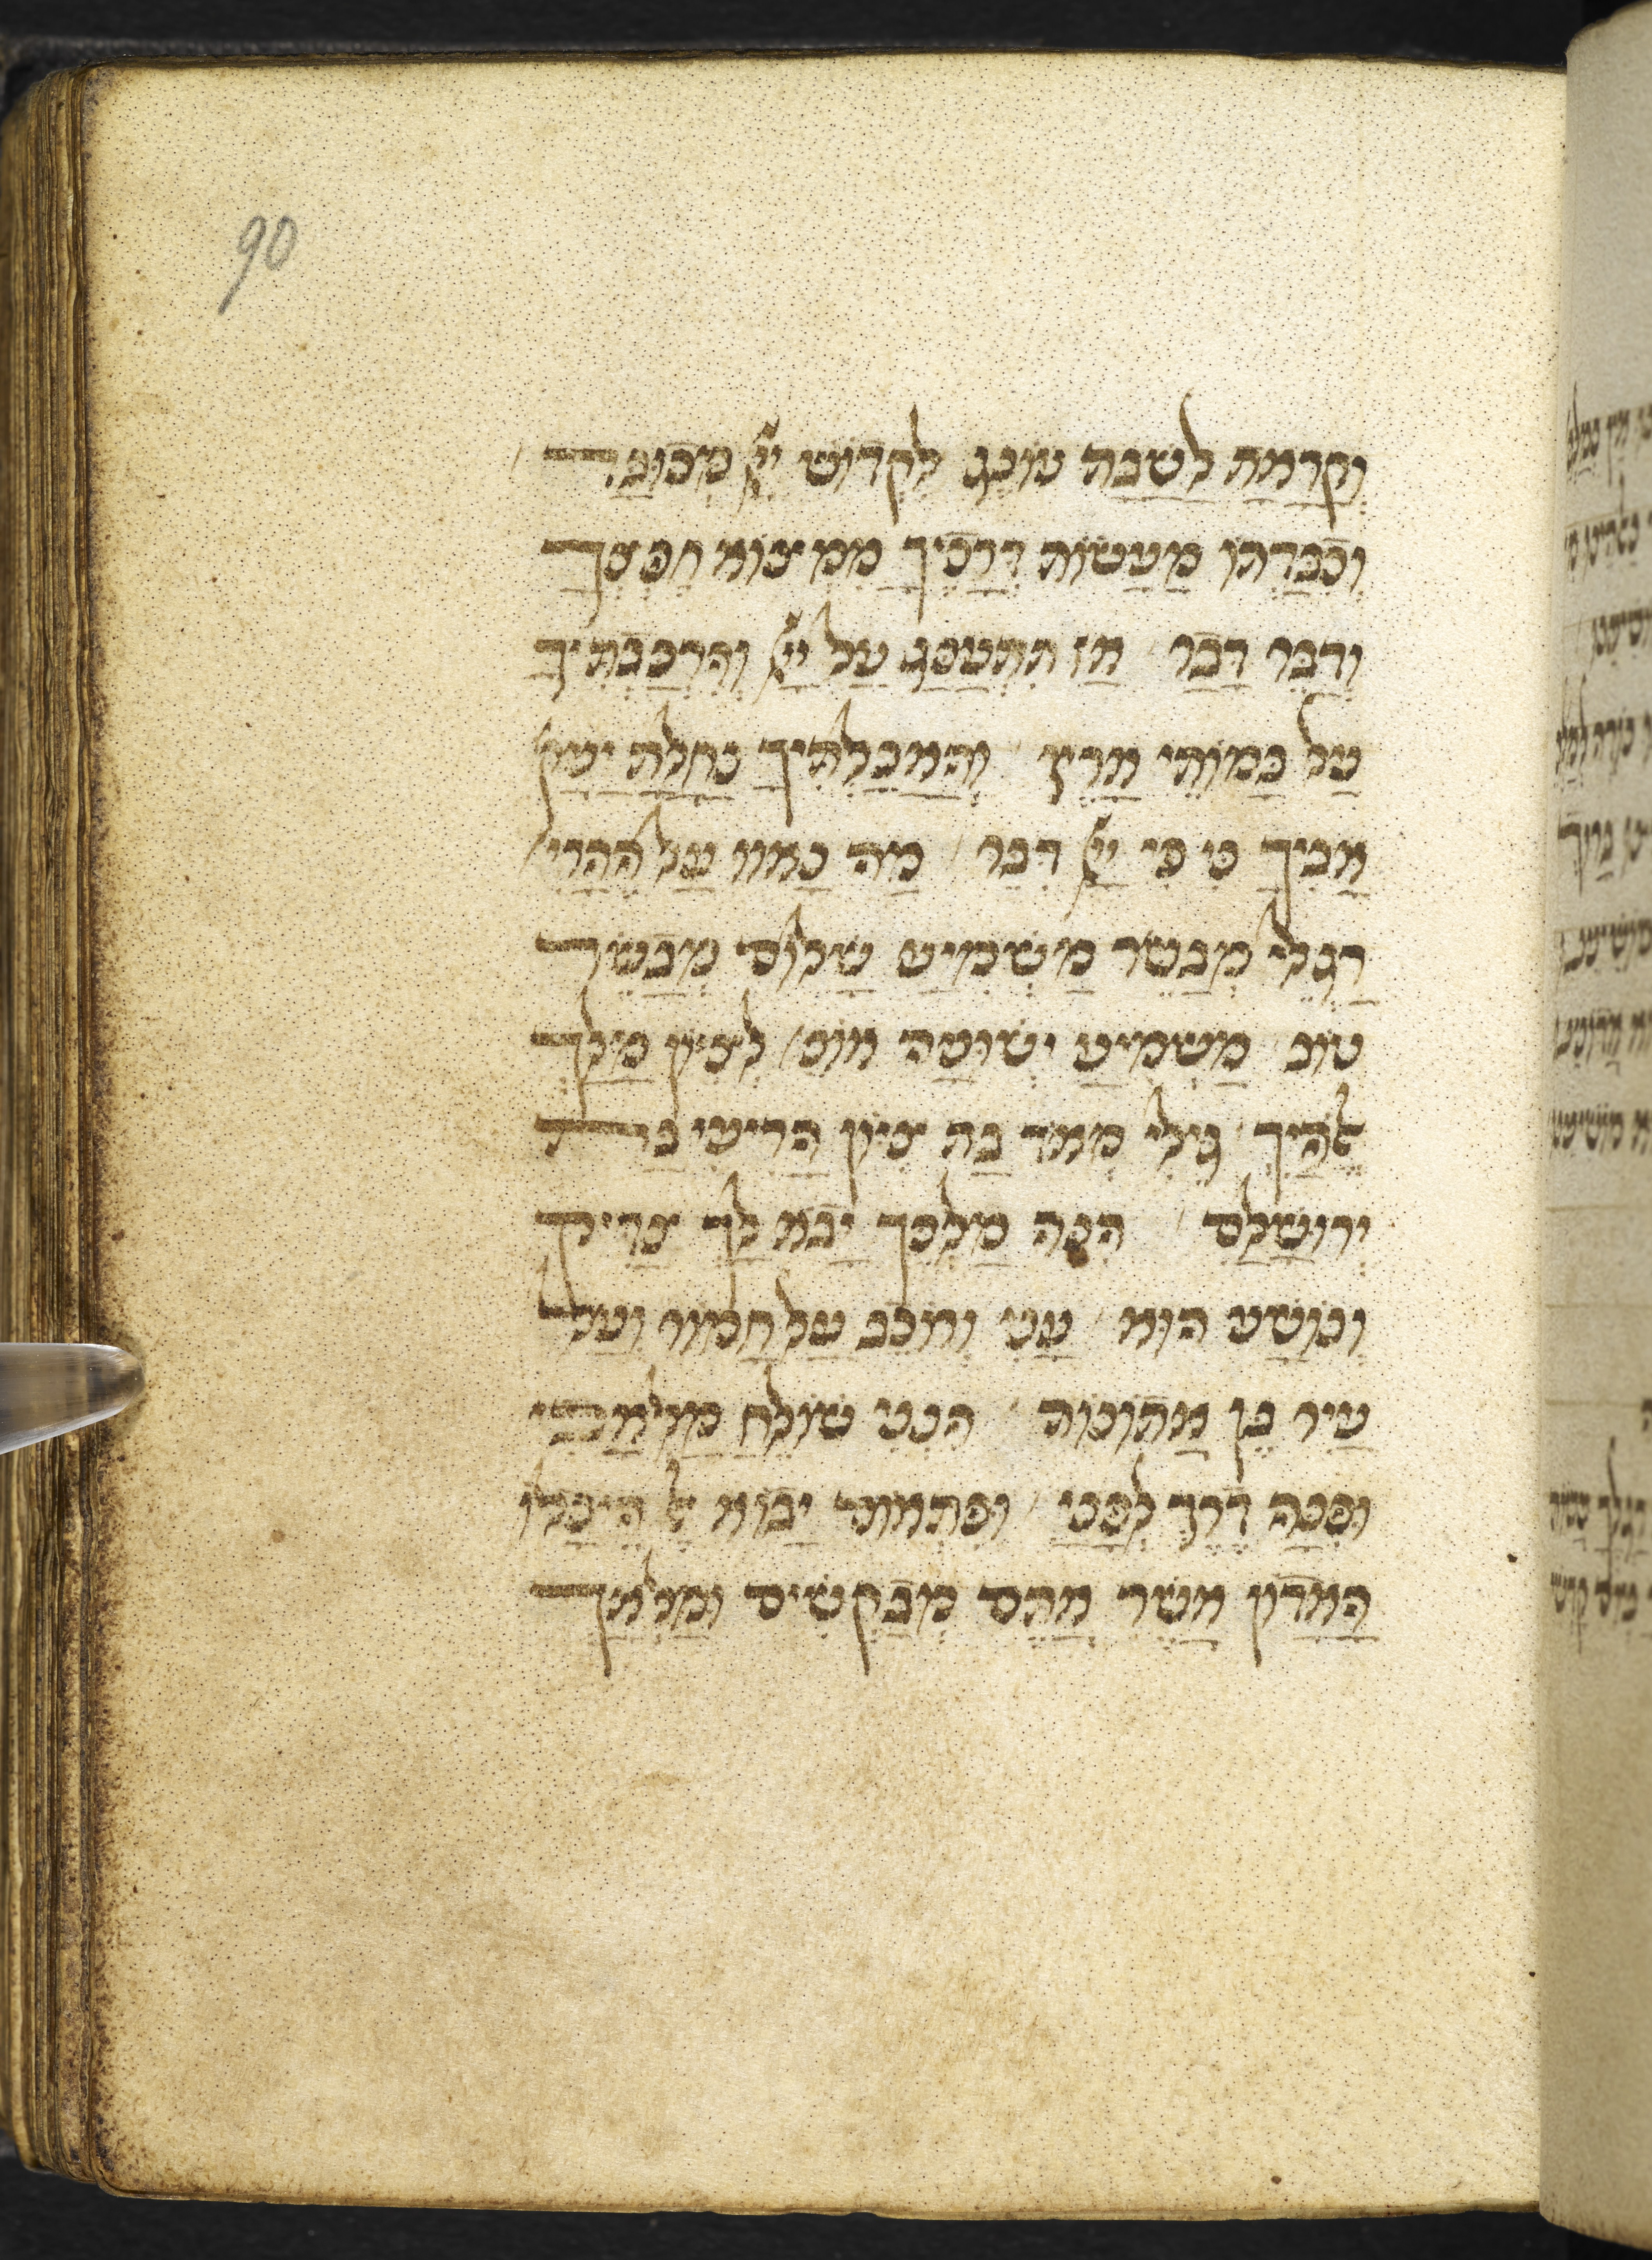 90
וְקָרָאתָ לַשַּׁבָּת עוֹנֶג לִקְדוֹשׁ יְיָ מְכוּבָּד
וְכִבַּדְתּוֹ מֵעֲשׂוֹת דְּרָכֶיךָ מִמְצוֹא חֶפְצְךָ
וְדַבֵּר דָּבָר אָז תִּתְעַנַּג עַל יְיָ וְהִרְכַּבְתִּיךָ
עַל בָּמֳתֵי אָרֶץ וְהַאֲכַלְתִּיךָ נַחֲלַת יַעֲק
אָבִיךָ כִּי פִּי יְיָ דִּבֵּר מַה נָּאווּ עַל הֶהָרִי
רַגְלֵי מְבַשֵּׂר מַשְׁמִיעַ שָׁלוֹם מְבַשֵּׂר
טוֹב מַשְׁמִיעַ יְשׁוּעָה אוֹמ לְצִיּוֹן מָלַךְ
אֱלֹהָיִךְ גִּילִי מְאֹד בַּת צִיּוֹן הָרִיעִי בַּת
יְרוּשָׁלַםִ הִנֵּה מַלְכֵּךְ יָבֹא לָךְ צַדִּיק
וְנוֹשָׁע הוּא עָנִי וְרוֹכֵב עַל חֲמוֹר וְעַל
עַיִר בֶּן אֲתוֹנוֹת הִנְנִי שׁוֹלֵחַ מַלְאָכִי
וּפִנָּה דֶּרֶךְ לְפָנָי וּפִתְאוֹם יָבוֹא אֶל הֵיכָלוֹ
הָאָדוֹן אֲשֶׁר אַתֶּם מְבַקְשִׁים וּמַלְאַךְ